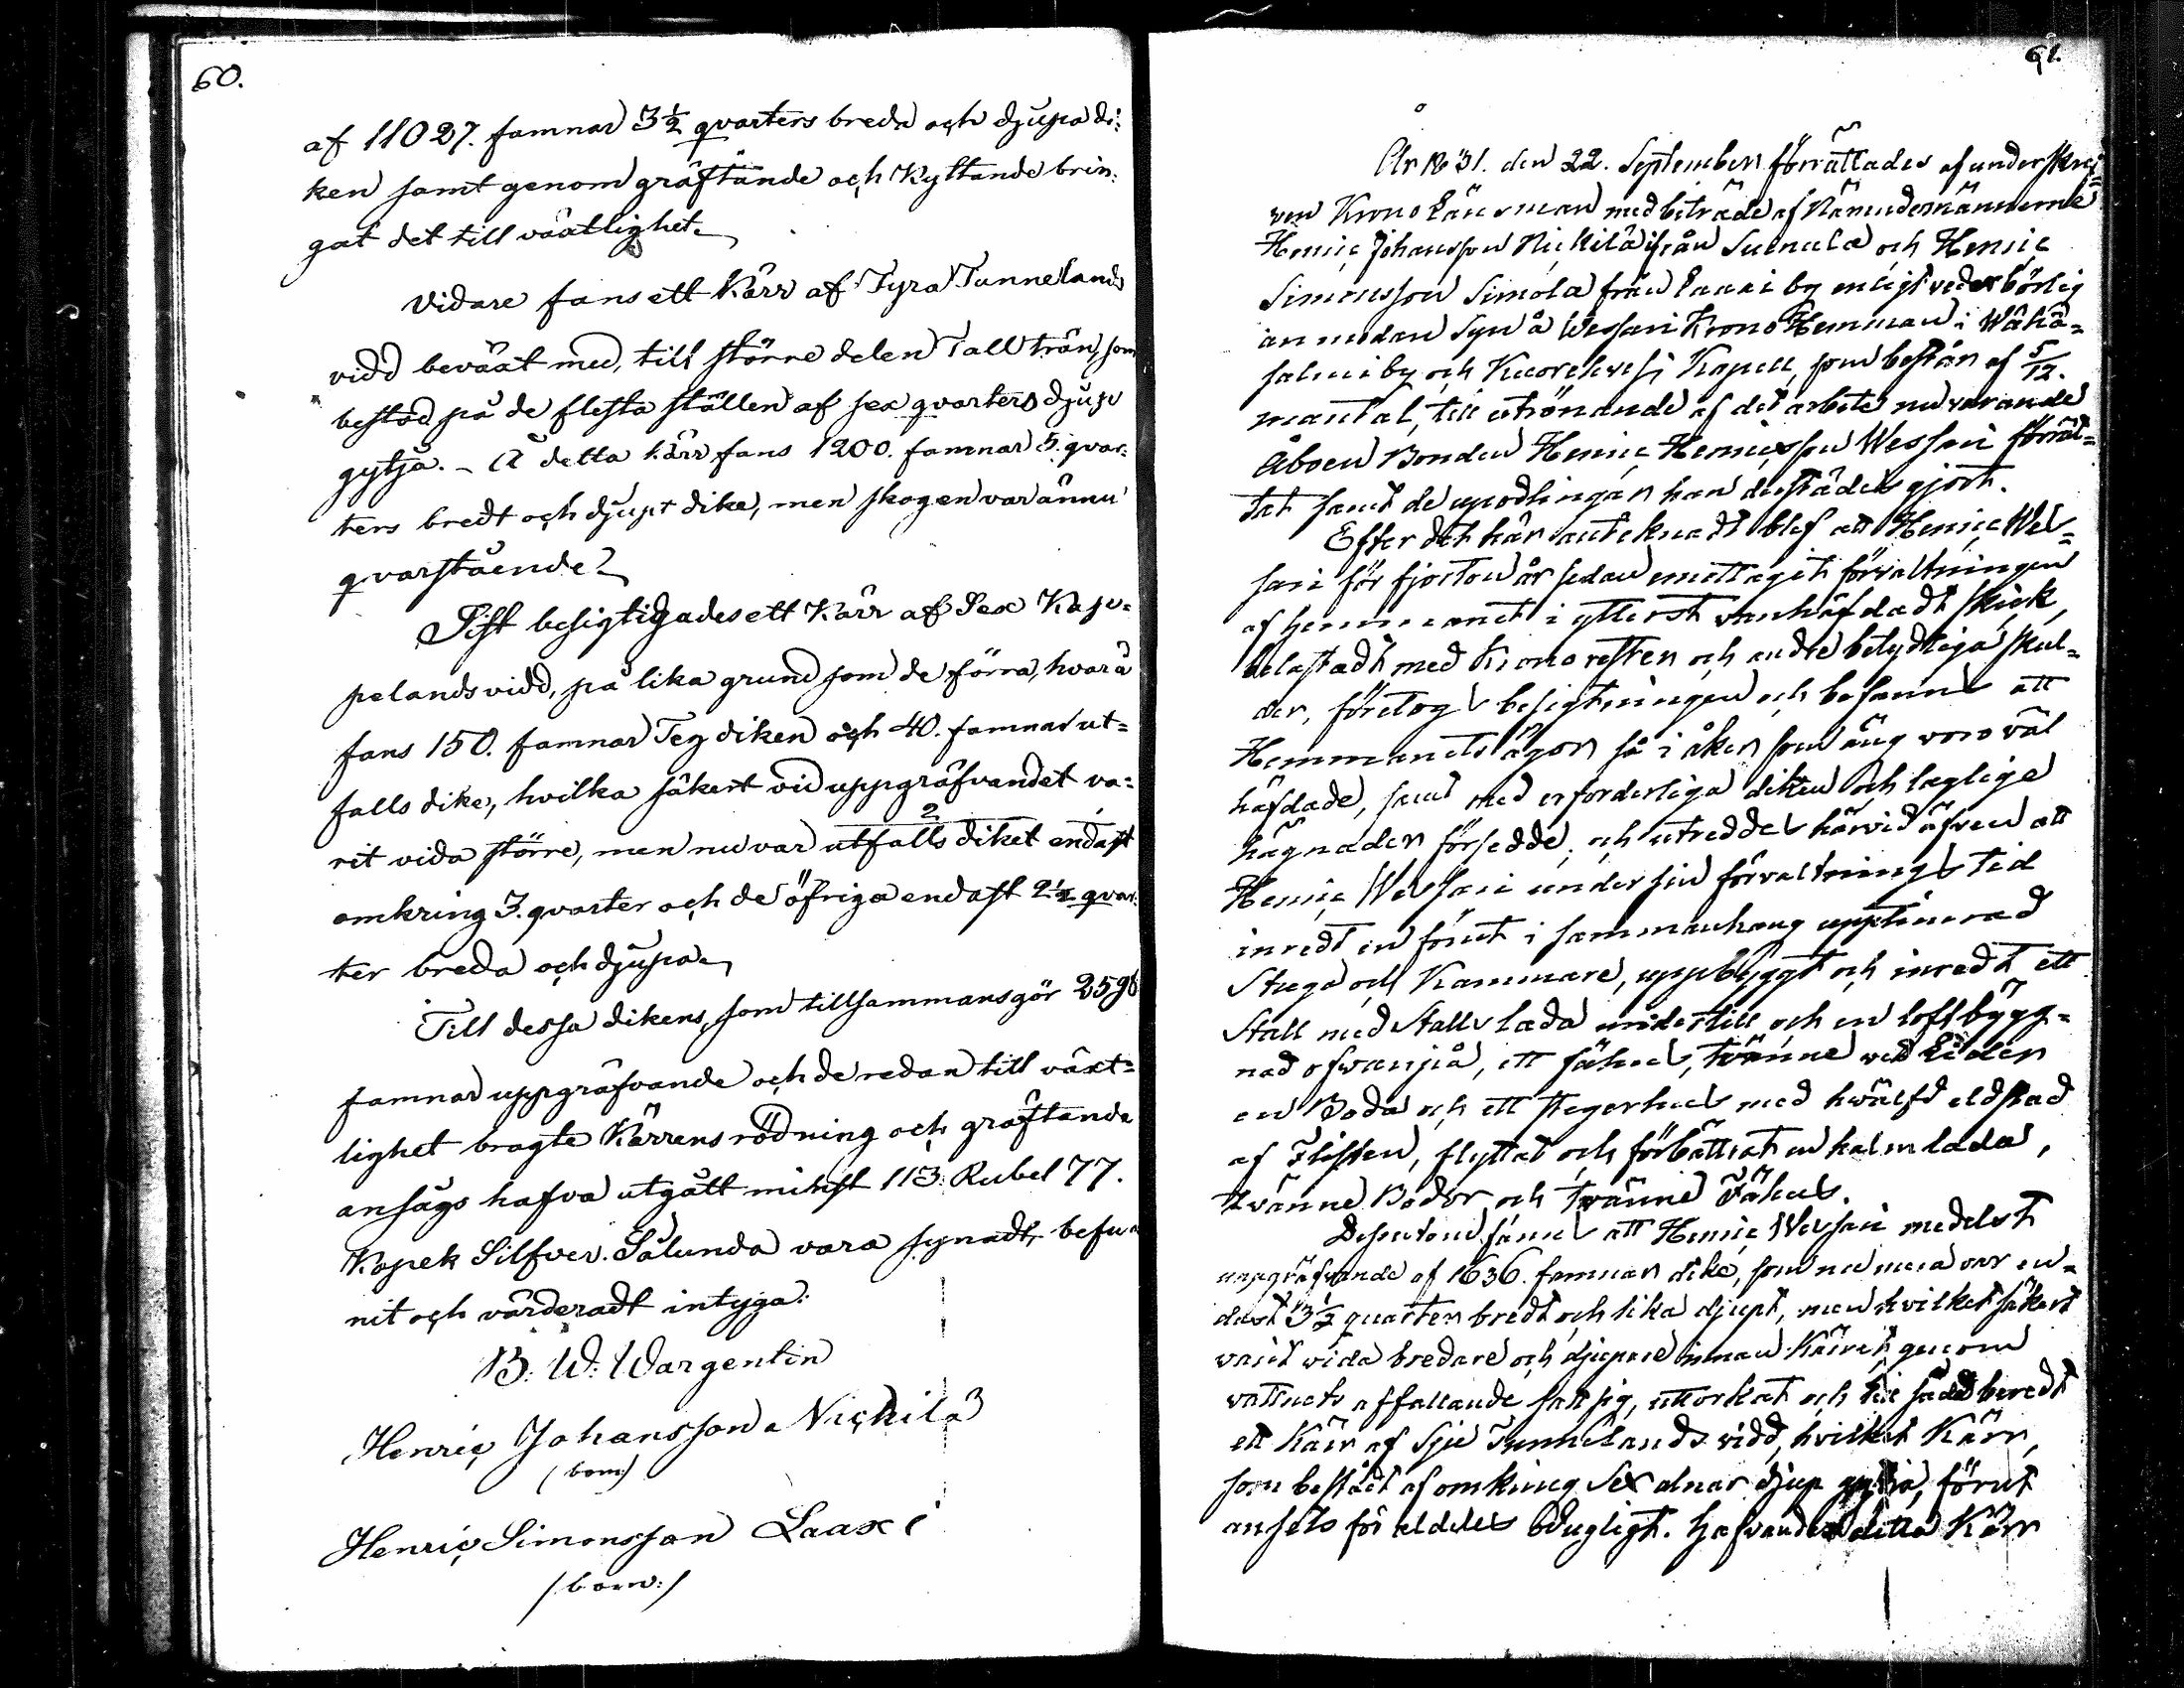 60.
af 11027. famnar 3½ qvarters breda och djupa di:
ken samt genom gräftande och Kyttande brin:
gat det till växtlighet.
Vidare fans ett Kärr af Fyra Tunnelands
vidd beväxt med, till större delen Tall trän, som
bestod på de flesta ställen af sex qvarters djup
gytja. – Å detta kärr fans 1200. famnar 5. qvar:
ters bredt och djupt dike, men skogen var ännu
qvarstående.
Sist besigtigades ett Kärr af Sex Kap=
pelands vidd, på lika grund som de förra, hvarå
fans 150. famnar Teg diken och 40. famnar ut=
falls dike, hvilka säkert vid uppgräfvandet va:
rit vida större, men nu var utfalls diket endast
omkring 3. qvarter och de öfriga endast 2½ qvar:
ter breda och djupa.
Till dessa dikens, som tillsammans gör 2598
famnar uppgräfvande och de redan till växt=
lighet bragte Kärrens rödning och gräftande
ansågs hafva utgått minst 113. Rubel 77.
Kopek Silfver. Sålunda vara synadt, befun
nit och värderadt intyga.
B. W. Wargentin
Henric Johansson Nickilä
(bom)
Henric Simonsson Laaxi
/bom:/
61.
År 1831. den 22. September förrättades af underskrif=
ven Krono Länsman med biträde af Nämndemännerne
Henric Johansson Nickilä ifrån Suinula och Henric
Simonsson Simola från Laaxi by enligt vederbörlig
anmodan Syn å Wessari Krono Hemman i Wähä=
salmi by och Kuorehvesi Kapell, som består af 5/12.
mantal, till utrönande af det arbete nuvarande
Åboen Bonden Henric Henricsson Wessari förrät=
tat samt de upodlingar han derstädes gjort.
Efter det här antecknadt blef att Henric Wes=
sari för fjorton år sedan emottagit förvaltningen
af hemmanet i ytterst vanhäfdadt skick,
belastadt med Kronorester och andre betydliga skul=
der, företogs besigtningen och befanns att
Hemmanets ägor så i åker som äng voro väl
häfdade, samt med erforderliga diken och laglige
hägnader försedde; och utreddes härvid äfven att
Henric Wessari under sin förvaltnings tid
inredt en förut i sammanhang upptimrad
Stuga och Kammare, uppbyggt och inredt ett
Stall med Stalls lada undertill och en loftbygg=
nad ofvanpå, ett fähus, tvänne Lider
en Boda och ett stegerhus med hwälfd eldstad
af Flissten, flyttat och förbättrat en halmlada,
tvänne Bodor och tvänne Fähus.
Dessutom fanns att Henric Wessari medelst
uppgräfvande af 1636. famnar dike, som nu mera var en=
dast 3½ quarter bredt och lika djupt, men hvilket säkert
varit vida bredare och djupare innan Kärret genom
vattnets affallande satt sig, uttorkat och till säd beredt
ett Kärr af Sju Tunnelands vidd, hvilket Kärr,
som bestått af omkring Sex alnar djup gytja, förut
ansets för aldeles oduglygt. Hafvandes detta Kärr